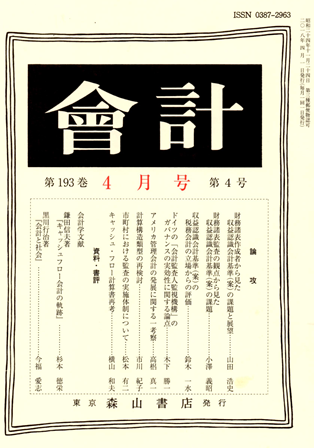 ISSN 0387-2963
昭和二十四年十一月二十四日 第三種郵便物認可
二〇一八年四月一日発行(毎月一回一日発行)
會計
第193巻 4月号 第4号
論攻
財務諸表作成者から見た
収益認識会計基準(案)の課題と展望…山田 浩史
財務諸表監査の観点から見た
収益認識会計基準(案)の課題…小澤 義昭
収益認識会計基準(案)の
税務会計の立場からの評価…鈴木 一水
ドイツの「会計監査人監視機構」の
ガバナンスの実効性に関する論点…木下 勝一
アメリカ管理会計の発展に関する一考察…高梠 真一
計算構造類型の再検討…市川 紀子
市町村における監査の実施体制について…松本 有二
キャッシュ・フロー計算書再考…横山 和夫
資料・書評
会計学文献
鎌田信夫著
『キャッシュフロー会計の軌跡』…杉本 徳栄
黒川行治著
『会計と社会』…今福 愛志
東京 森山書店 発行